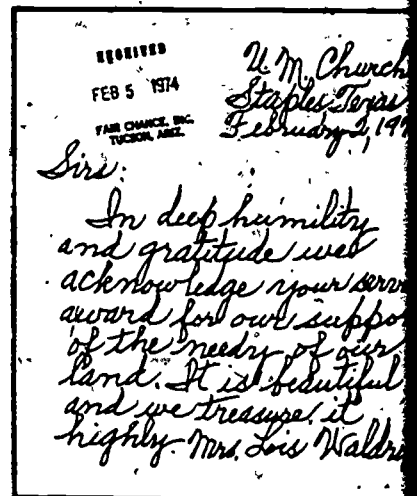 RECEIVED
FEB 5 1974
FAIR CHANCE, INC.
TUCSON, ARIZ.
U. M. Church
Staples, Texas
February 2, 197
Sirs:
In deep humility
and gratitude we
acknowledge your serv
award for our suppo
of the needy of our
land. It is beautiful
and we treasure it
highly. Mrs. Lois Waldr